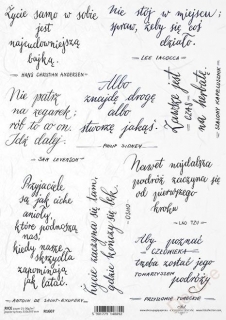 Życie samo w sobie
jest
najcudowniejszą
bajką.
HANS CHRISTIAN ANDERSEN
Nie stój w miejscu;
spraw, żeby się coś
działo.
LEE IACOCCA
Nie patrz
na zegarek;
rób to co on.
Idź dalej.
SAM LEVENSON
Albo
znajdę drogę
albo
stworzę jakąś.
PHILIP SIDNEY
Zawsze jest
czas
na herbatę
SZALONY KAPELUSZNIK
Przyjaciele
są jak ciche
anioły,
które podnoszą
nas,
kiedy nasze
skrzydła
zapominają
jak latać.
ANTOINE DE SAINT-EXUPÉRY
Życie zaczyna się tam,
gdzie kończy się lęk.
OSHO
Nawet najdalsza
podróż zaczyna się
od pierwszego
kroku
LAO TZU
Aby poznać
CZŁOWIEKA
trzeba zostać jego
TOWARZYSZEM
podróży
PRZYSŁOWIE TURECKIE